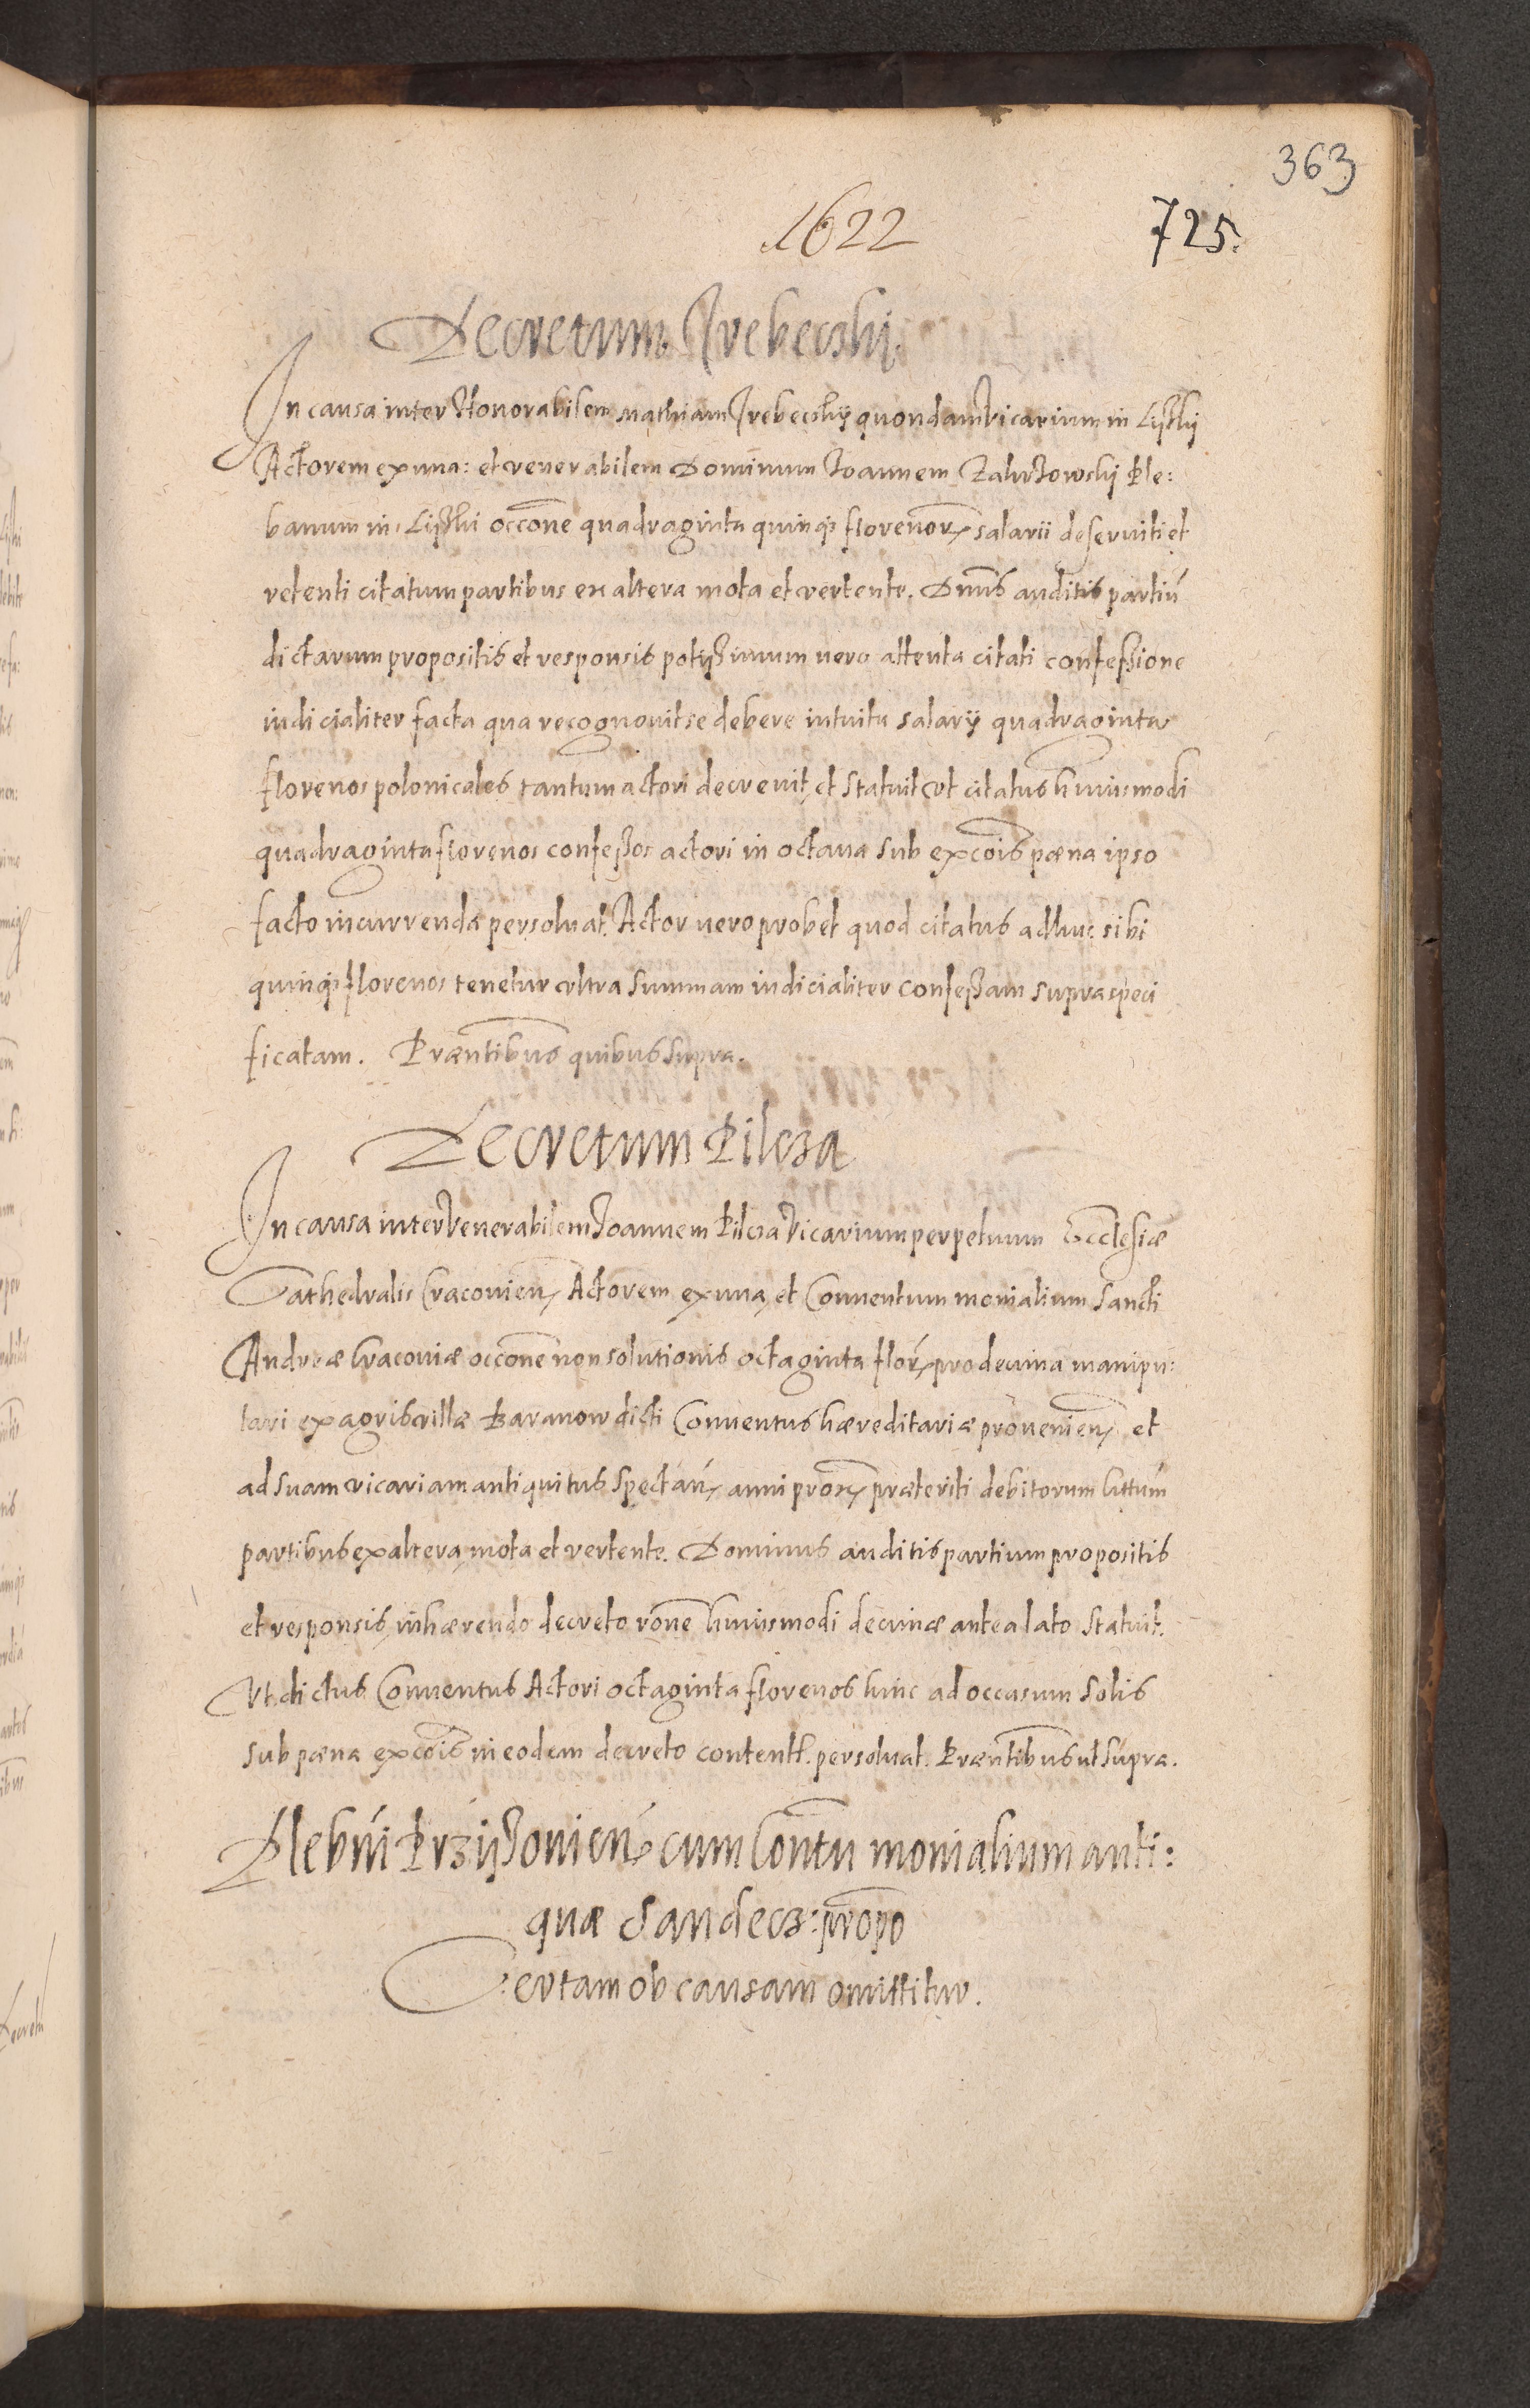 363
1622
725.
Decretum Trebecski.
In causa inter Honorabilem Mathiam Trebecskij quondam Vicarium in Lißki
Actorem ex una: et venerabilem Dominum Joannem Zakrzowskj Ple:
banum in Lißki occōne quadraginta quinq₃ florenoꝝ salarii deserviti et
retenti citatum partibus ex altera mota et vertente. Dnūs auditis partiū
dictarum propositis et responsis potijßimum vero attenta citati confeßione
iudicialiter facta qua recognouit se debere intuitu salarij quadraginta
florenos polonicales tantum actori decreuit, et statuit vt citatus huiusmodi
quadraginta florenos confeßos actori in octaua sub excōis pæna ipso
facto incurrenda persoluat. Actor uero probet quod citatus adhuc sibi
quinq₃ florenos tenetur vltra summam iudicialiter confeßam supra speci
ficatam. Præntibus quibus supra.
Decretum Pilcza
In causa inter Venerabilem Joannem Pilcza Vicarium perpetuum Ecclesiæ
Cathedralis Cracouien, Actorem ex una, et Conuentum monialium Sancti
Andreæ Cracouiæ occōne non solutionis octaginta floꝝ pro decima manipu:
lari ex agris villæ Baranow dicti Conuentus hæreditariæ prouenien, et
ad suam vicariam antiquitus spectań, anni proxe præteriti debitorum Cittum
partibus ex altera mota et vertente. Dominus auditis partium propositis
et responsis, inhærendo decreto rōne huiusmodi decimæ antea lato statuit.
Vt dictus Conuentus Actori octaginta florenos hinc ad occasum Solis
sub pæna excōis in eodem decreto content. persoluat. Præntibus ut supra.
Plebńi Przijßouień cum Contu monialium anti:
quæ Sandecz: propo
Certam ob causam omittitur.